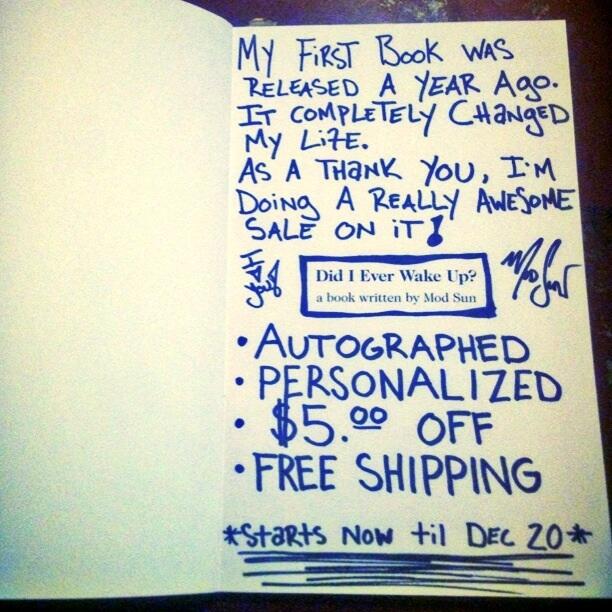 My First Book was
released a year ago.
It completely changed
my life.
As a thank you, I'm
doing a really awesome
sale on it!
Did I Ever Wake Up?
a book written by Mod Sun
Mod Sun
• AUTOGRAPHED
• PERSONALIZED
• $5.00 OFF
• FREE SHIPPING
*Starts Now til Dec 20*